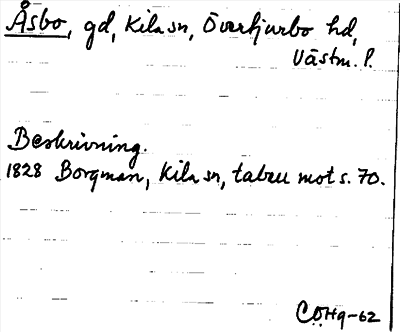 Åsbo, gd, Kila sn, Övertjurbo hd,
Västm. l.
Beskrivning.
1828 Borgman, Kila sn, tabell mot s. 70.
CÖHq-62